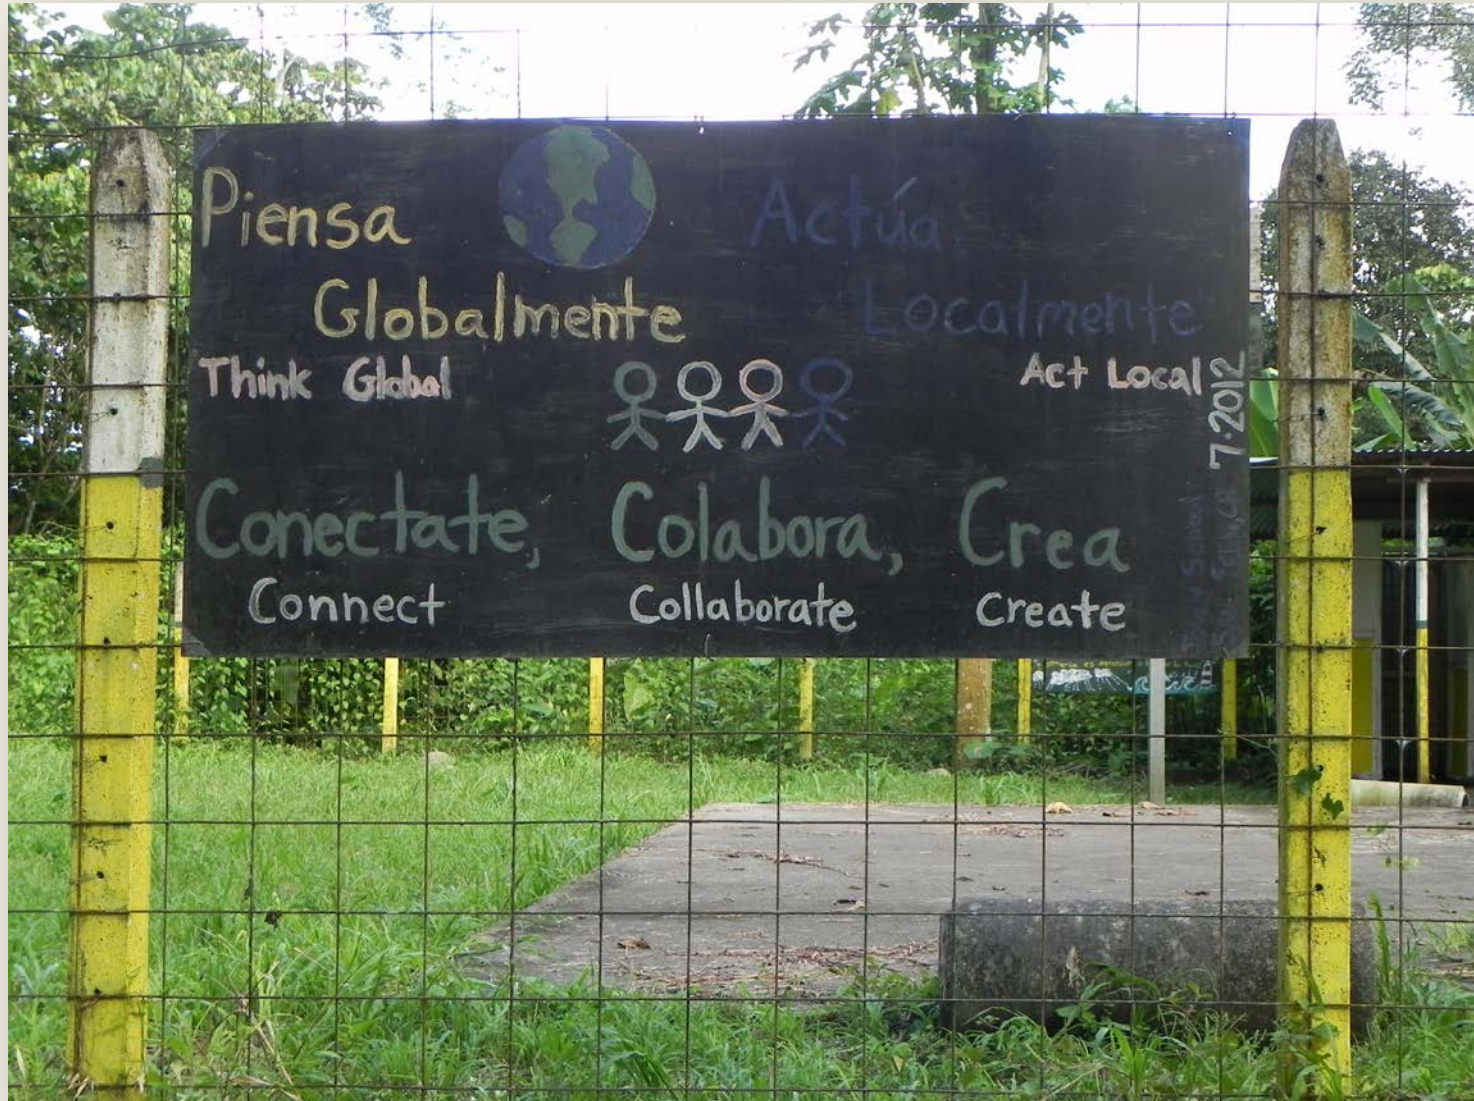 Piensa Actúa
Globalmente Localmente
Think Global Act Local
Conectate, Colabora, Crea
Connect Collaborate Create
7·2012